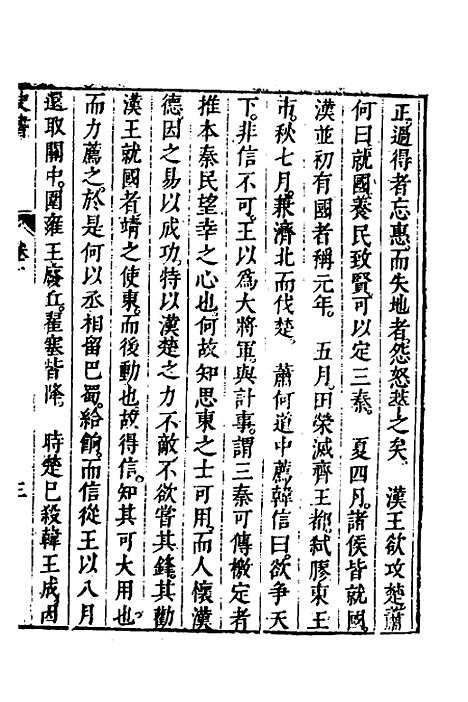 正過得者忘惠而失地者怨怒熾之矣　漢王欲攻楚蕭
何曰就國養民致賢可以定三秦　夏四月諸侯皆就國
漢並初有國者稱元年　五月田榮滅齊王都弒膠東王
市秋七月兼濟北而伐楚　蕭何道中薦韓信曰欲爭天
下非信不可王以爲大將軍與計事謂三秦可傳檄定者
推本秦民望幸之心也何故知思東之士可用而人懷漢
德因之易以成功特以漢楚之力不敵不欲嘗其鋒其勸
漢王就國者靖之使東而後動也故得信知其可大用也
而力薦之於是何以丞相留巴蜀給餉而信從王以八月
還取關中圍雍王廢丘翟塞皆降　時楚已殺韓王成因
史書　卷　三